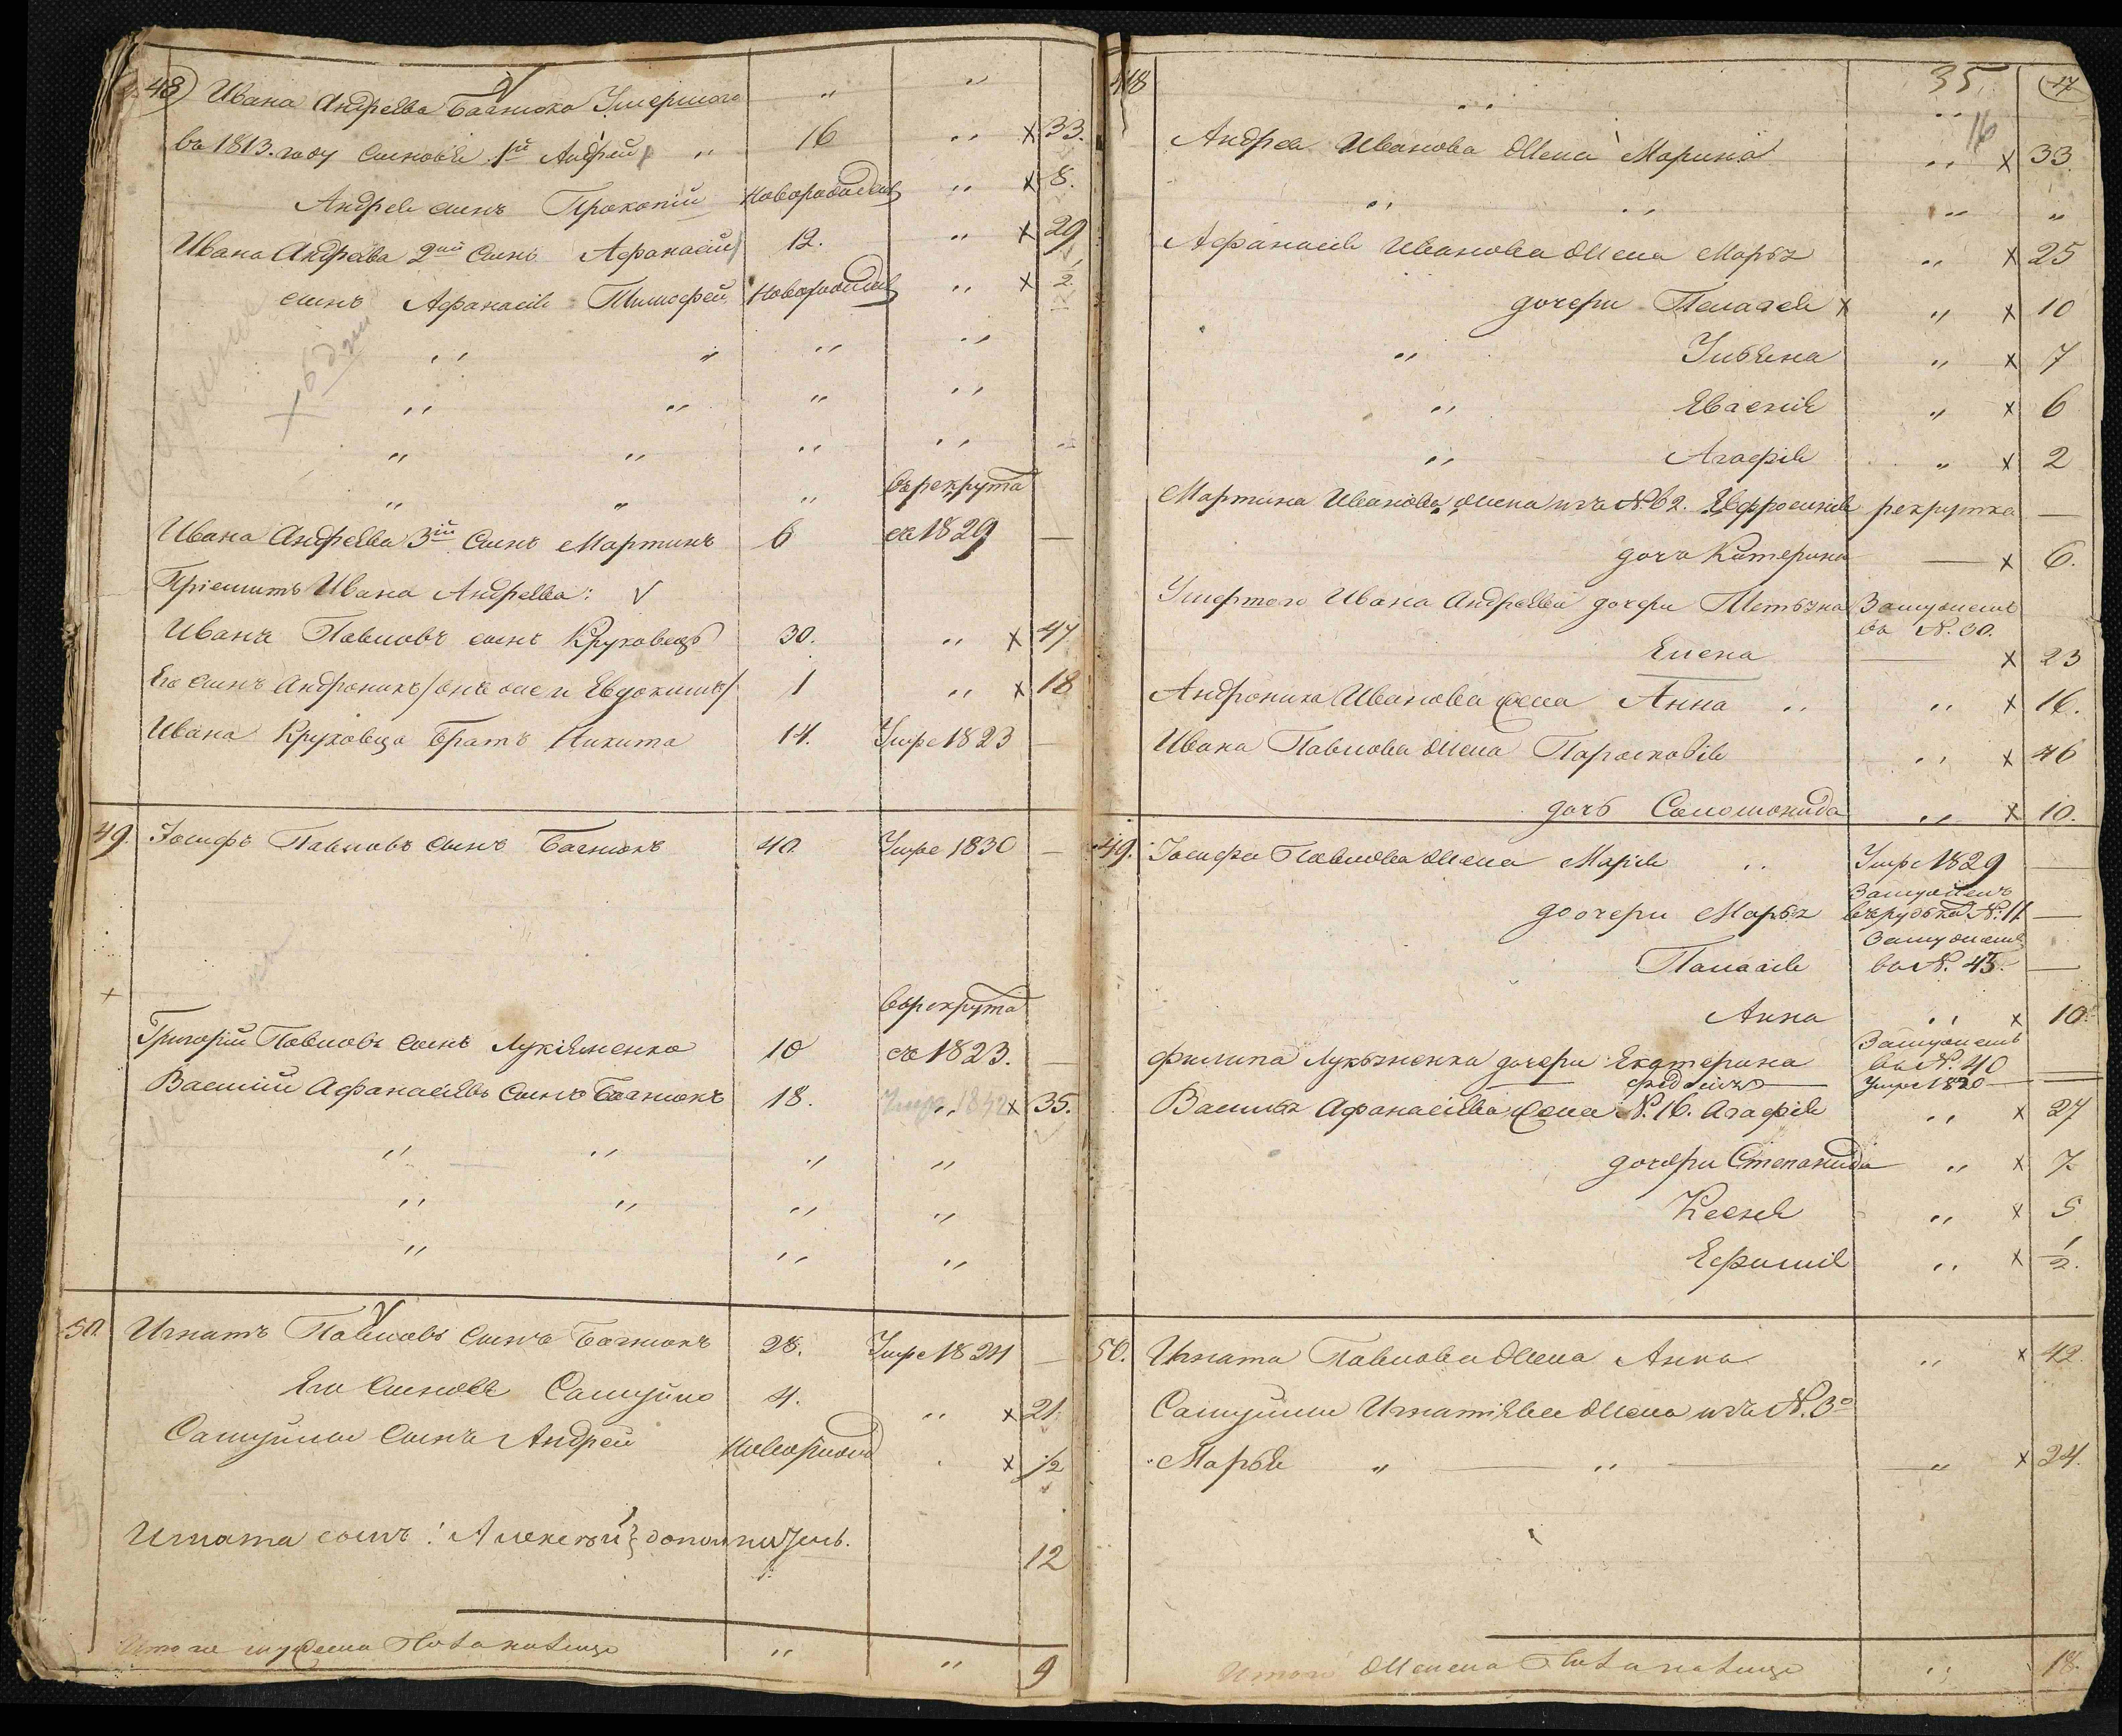 48 Ивана Андреева Багнюка Умершаго „ „
въ 1813. году сыновья 1й Андрей „ 16 „ x 33.
Андрея сынъ Прокопій новорожден „ x 8.
Ивана Андреева 2ий сынъ Афанасій 12. „ x 29
сынъ Афанасія Тимофей новорожден „ x 2
„ „ „ „
„ „ „ „
„ „ „ „
„ „ „ въ рекрута
Ивана Андреева 3ій сынъ Мартинъ 6 съ 1829 —
Пріемитъ Ивана Андреева: V
Иванъ Павловъ сынъ Круковецъ 30. „ x 47
Его сынъ Андроникъ /онъ же и Евдокимъ/ 1 „ x 18
Ивана Круковца братъ Никита 14. Умре 1823 —
49. Іосифъ Павловъ сынъ Багнюкъ 40. Умре 1830 —
въ рекрута
Григорій Павловъ сынъ Лукіяненко 10 съ 1823. —
Василій Афанасіевъ сынъ Багнюкъ 18. „ x 35.
„ „ „ „
„ „ „ „
„ „ „
50. Игнатъ Павловъ сынъ Багнюкъ 28. Умре 1824 —
Его сыновья Самуйло 4. „ x 21.
Самуйлы сынъ Андрей новорожд x 1/2
Игната сынъ: Алексей} дополнитель. 12
Итого мужеска Пола налицо „ „ 9
48 „ 35 17
„ 16
Андрея Ивановa жена Марина „ x 33
„ „ „ „
Афанасія Иванова жена Марья „ x 25
дочери Пелагея x „ x 10
„ Ульяна „ x 7
„ Евгенія „ x 6
„ Агафія „ x 2
Мартина Иванова жена изъ №62. Евфросинія рекрутка —
дочь Катерина — x 6.
Умертого Ивана Андреева дочери Тетьяна Замужемъ
въ №. 30.
Елена — x 23
Андроника Иванова жена Анна „ „ x 16.
Ивана Павлова жена Парасковія „ x 46
дочь Соломонида „ x 10.
49. Іосифа Павлова жена Марія „ Умре 1829 —
доочери Марья Замужемъ
№. 11. —
Палагія Замужемъ
въ №. 45. —
Анна „ x 10.
Филипа Лукьяненка дочери Екатерина Замужемъ
въ №. 40 —
Умре 1820 —
Василья Афанасіева жена №. 16. Агафія „ x 27
дочери Степанида „ x 7.
Ксенія „ x 5
Ефимія „ x 1/2.
50. Игната Павлова жена Анна „ x 42.
Самуйлы Игнатіева жена изъ №. 30
Марья „ — „ — „ x 24.
Итого женска Пола налицо „ 18.